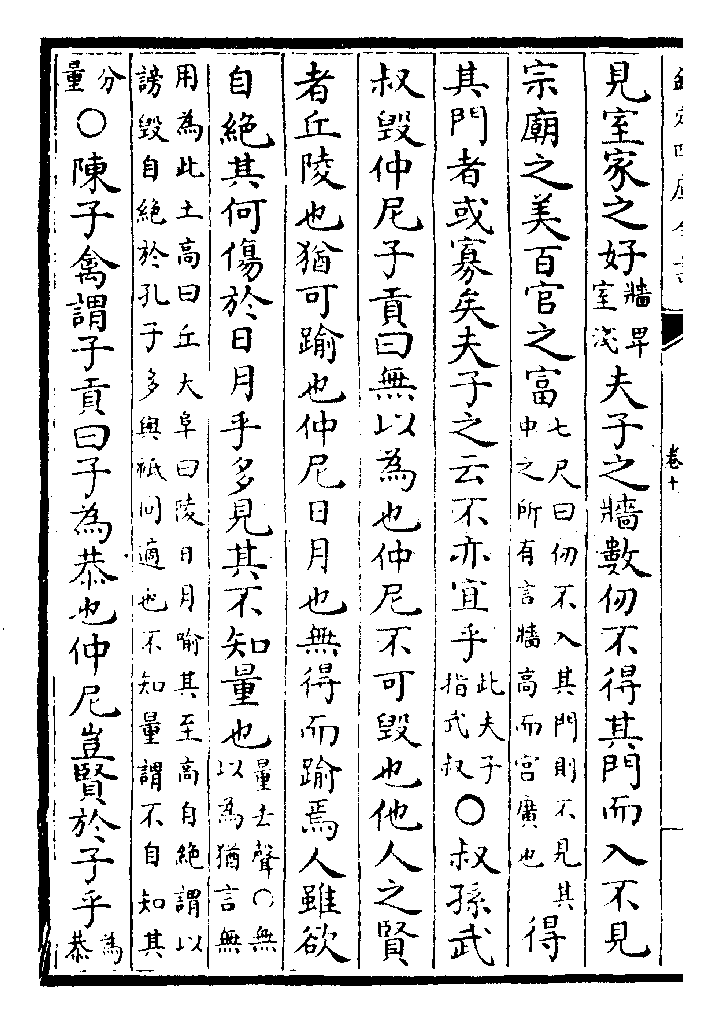 欽定四庫全書
卷十
見室家之好牆卑室淺夫子之牆數仞不得其門而入不見
宗廟之美百官之富七尺曰仞不入其門則不見其中之所有言牆高而宮廣也得
其門者或寡矣夫子之云不亦宜乎此夫子指武叔○叔孫武
叔毀仲尼子貢曰無以為也仲尼不可毀也他人之賢
者丘陵也猶可踰也仲尼日月也無得而踰焉人雖欲
自絶其何傷於日月乎多見其不知量也量去聲○無以為猶言無
用為此土高曰丘大阜曰陵日月喻其至高自絶謂以
謗毀自絶於孔子多與祗同適也不知量謂不自知其
分量○陳子禽謂子貢曰子為恭也仲尼豈賢於子乎為恭